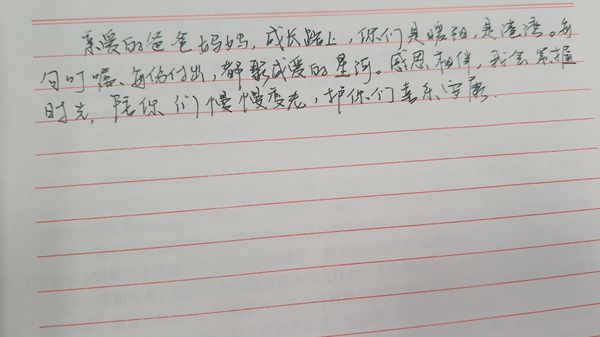 亲爱的爸爸妈妈，成长路上，你们是暖阳，是港湾。每
句叮嘱、每份付出，都聚成爱的星河。感恩相伴，我会紧握
时光，陪你们慢慢变老，护你们喜乐安康.